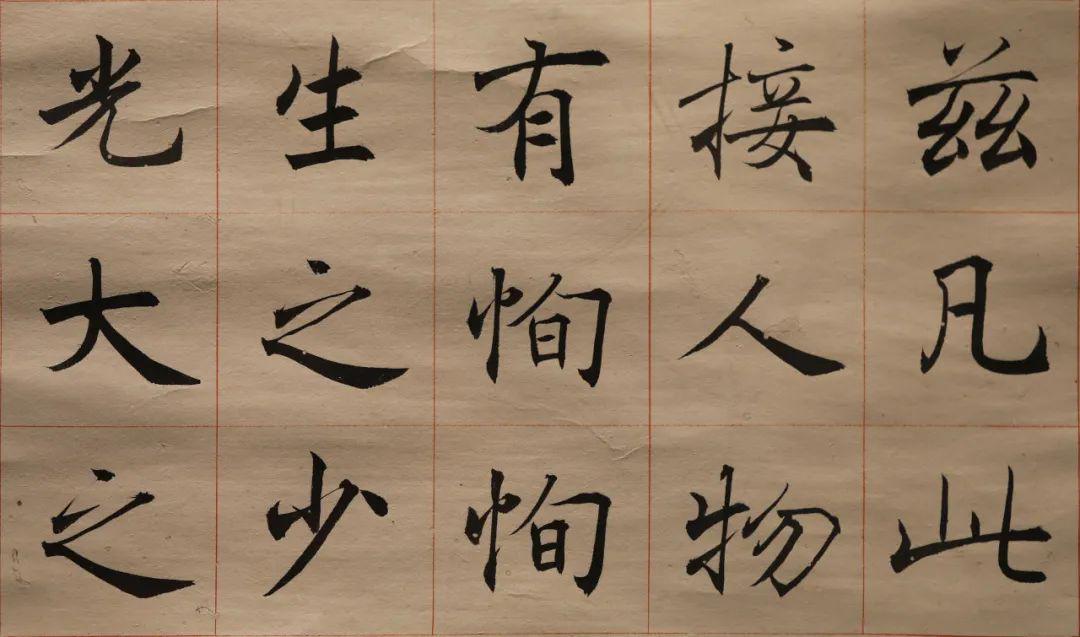 兹凡此
接人物
有恂恂
生之少
光大之